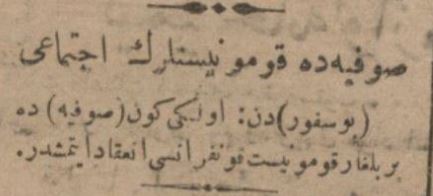 صوفیه‌ده قومونیستلرك اجتماعی
(بوسفور)دن: اولکی کون (صوفیه) ده
بر بلغار قومونیست قونفرانسی انعقاد ایتمشدر.